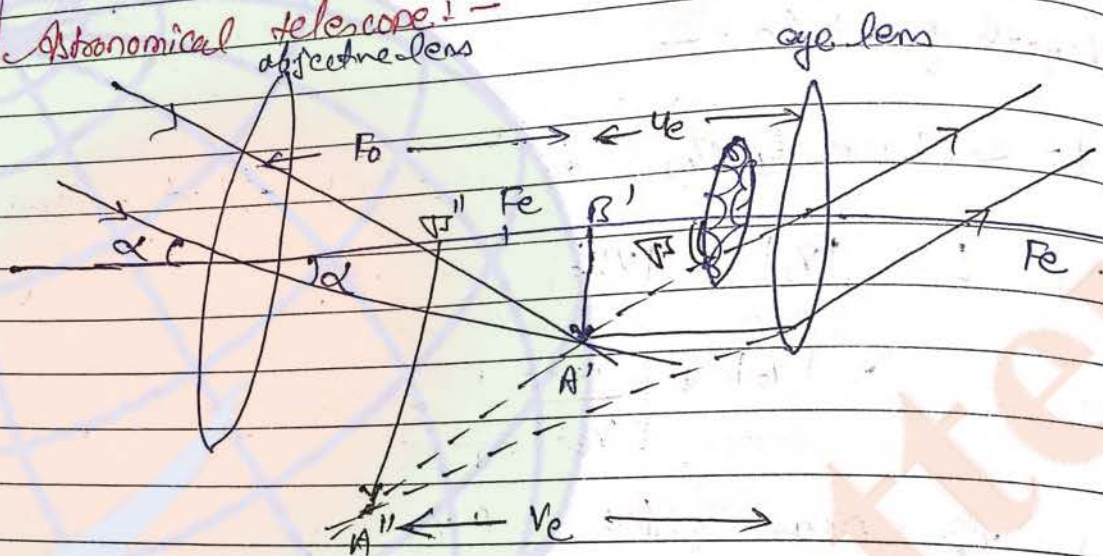 Astronomical telescope :-
objective lens
eye lens
Fo
ue
B"
Fe
B'
α
α
Fe
A'
A"
Ve